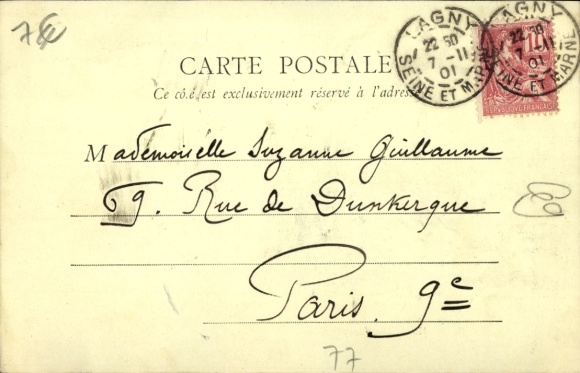 7€
LAGNY
22 50
7 -11
01
SEINE ET MARNE
LAGNY
22 50
7 -11
01
SEINE ET MARNE
10
RÉPUBLIQUE FRANÇAISE
CARTE POSTALE
Ce côté est exclusivement réservé à l'adresse
Mademoiselle Suzanne Guillaume
59. Rue de Dunkerque
Paris. 9e
77